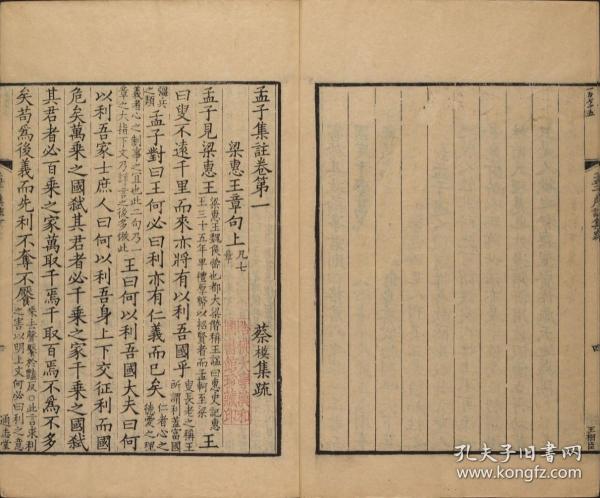 孟子集註卷第一
梁惠王章句上 凡七章
蔡模集疏
孟子見梁惠王 梁惠王魏侯罃也都大梁僭稱王諡曰惠史記惠王三十五年卑禮厚幣以招賢者而孟軻至梁 王
曰叟不遠千里而來亦將有以利吾國乎 叟長老之稱王所謂利蓋富國
彊兵之類 孟子對曰王何必曰利亦有仁義而已矣 仁者心之德愛之理
義者心之制事之宜也此二句乃一章之大指下文乃詳言之後多倣此 王曰何以利吾國大夫曰何
以利吾家士庶人曰何以利吾身上下交征利而國
危矣萬乘之國弒其君者必千乘之家千乘之國弒
其君者必百乘之家萬取千焉千取百焉不為不多
矣苟為後義而先利不奪不饜 此言求利之害以明上文何必曰利之意
通志堂
孔夫子旧书网
www.kongfz.com